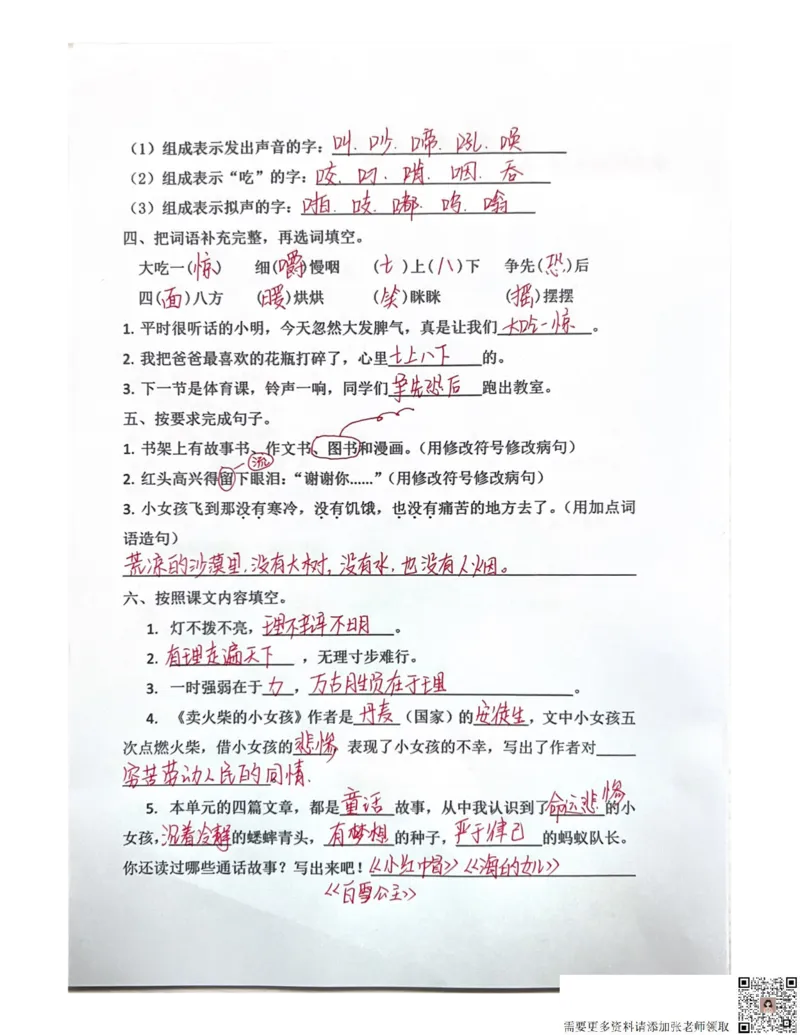 (1)组成表示发出声音的字:叫.吵.啼.吼.唤
(2)组成表示“吃”的字:咬.叼.啃.咽.吞
(3)组成表示拟声的字:啪.吱.嘟.呜.嗡
四、把词语补充完整,再选词填空。
大吃一(惊) 细(嚼)慢咽 (七)上(八)下 争先(恐)后
四(面)八方 (暖)烘烘 (笑)眯眯 (摇)摆摆
1. 平时很听话的小明,今天忽然大发脾气,真是让我们大吃一惊。
2. 我把爸爸最喜欢的花瓶打碎了,心里七上八下的。
3. 下一节是体育课,铃声一响,同学们争先恐后跑出教室。
五、按要求完成句子。
1. 书架上有故事书、作文书、图书和漫画。(用修改符号修改病句)
流
2. 红头高兴得留下眼泪:“谢谢你……”(用修改符号修改病句)
3. 小女孩飞到那没有寒冷,没有饥饿,也没有痛苦的地方去了。(用加点词
语造句)
荒凉的沙漠里,没有大树,没有水,也没有人烟。
六、按照课文内容填空。
1. 灯不拨不亮,理不辩不明。
2. 有理走遍天下,无理寸步难行。
3. 一时强弱在于力,万古胜负在于理。
4. 《卖火柴的小女孩》作者是丹麦(国家)的安徒生,文中小女孩五
次点燃火柴,借小女孩的悲惨,表现了小女孩的不幸,写出了作者对
穷苦劳动人民的同情.
5. 本单元的四篇文章,都是童话故事,从中我认识到了命运悲惨的小
女孩,沉着冷静的蟋蟀青头,有梦想的种子,严于律己的蚂蚁队长。
你还读过哪些通话故事?写出来吧!《小红帽》《海的女儿》
《白雪公主》
需要更多资料请添加张老师领取